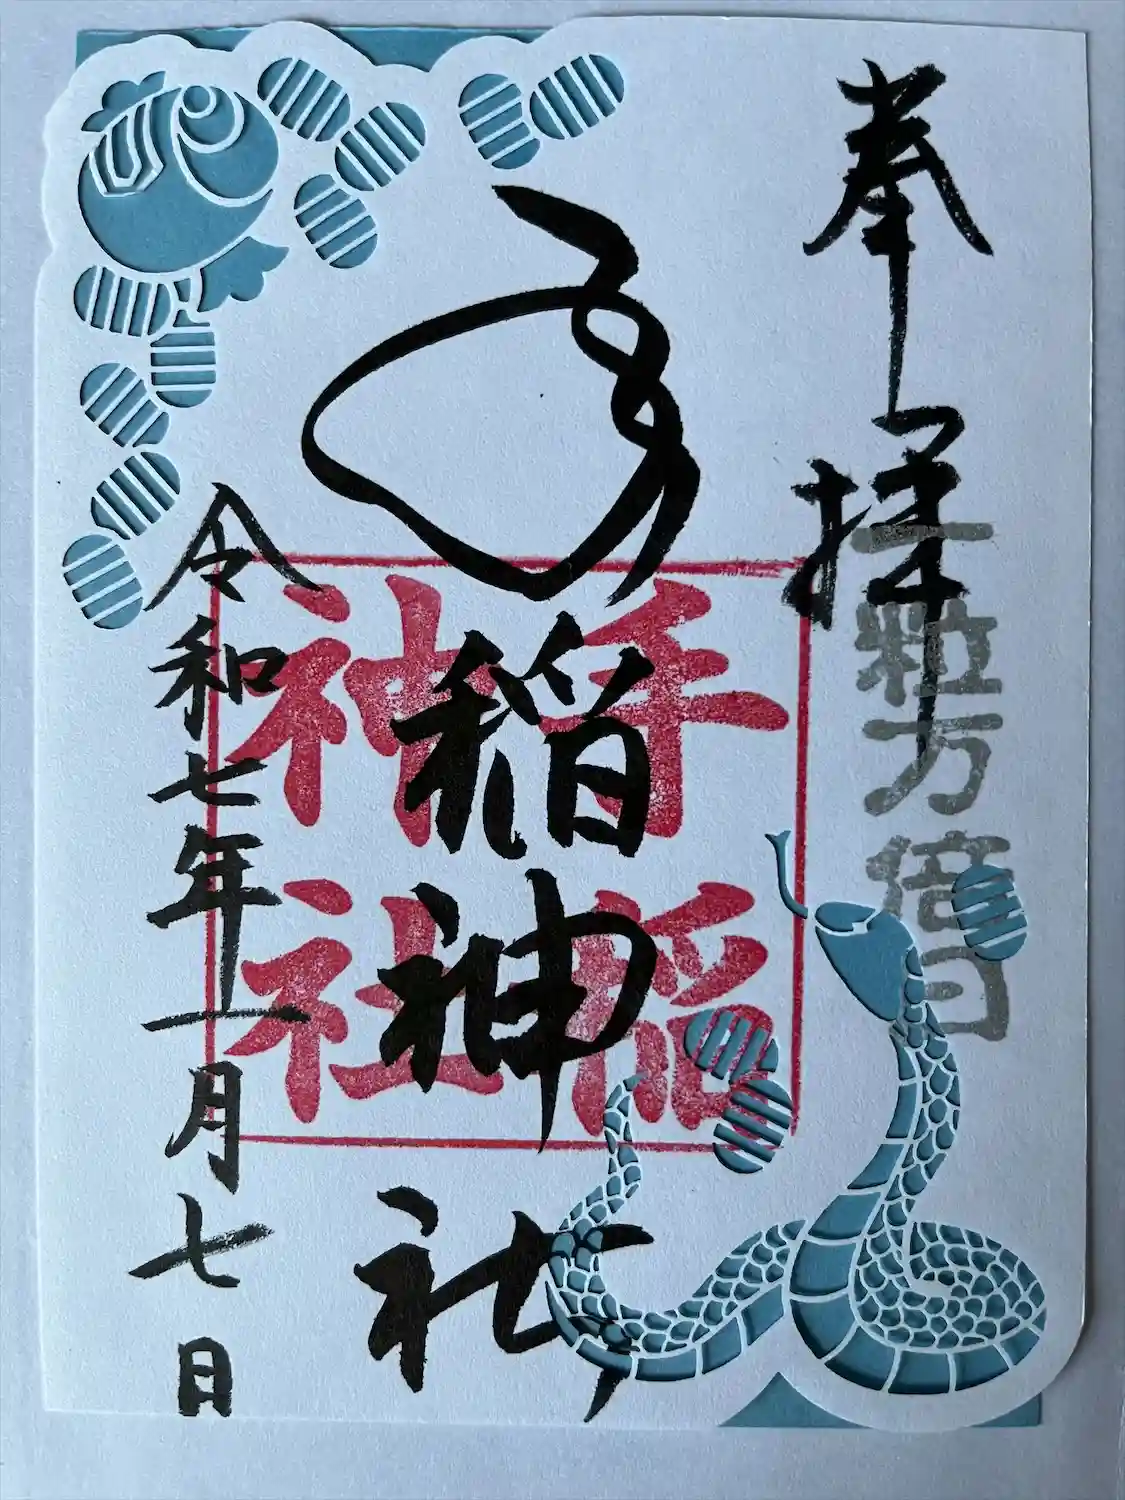 奉拝
一粒万倍日
手稲神社
手稲
神社
令和七年一月七日